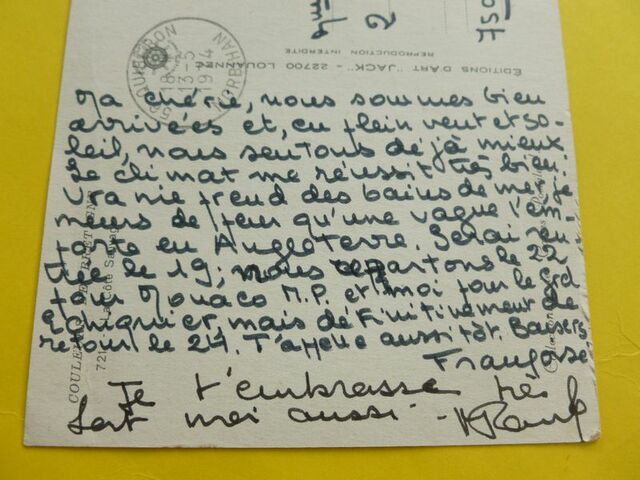 2
750
REPRODUCTION INTERDITE
ÉDITIONS D'ART "JACK" - 22700 LOUANNEC
QUIBERON
18 H
13-5
1974
MORBIHAN
Ma chérie, nous sommes bien
arrivées et, en plein vent et so-
leil, nous sentons déjà mieux.
Le climat me réussit très bien.
prend des bains de mer, je
meurs de peur qu'une vague l'em-
porte en Angleterre. Serai ren-
trée le 19, nous repartons le 22
pour Monaco M.P. et moi pour le Grd
Echiquier, mais définitivement de
retour le 24. T'appelle aussitôt. Baisers
Françoise
Je t'embrasse très
fort moi aussi -
COULEURS DE BRETAGNE
La Côte Sauvage